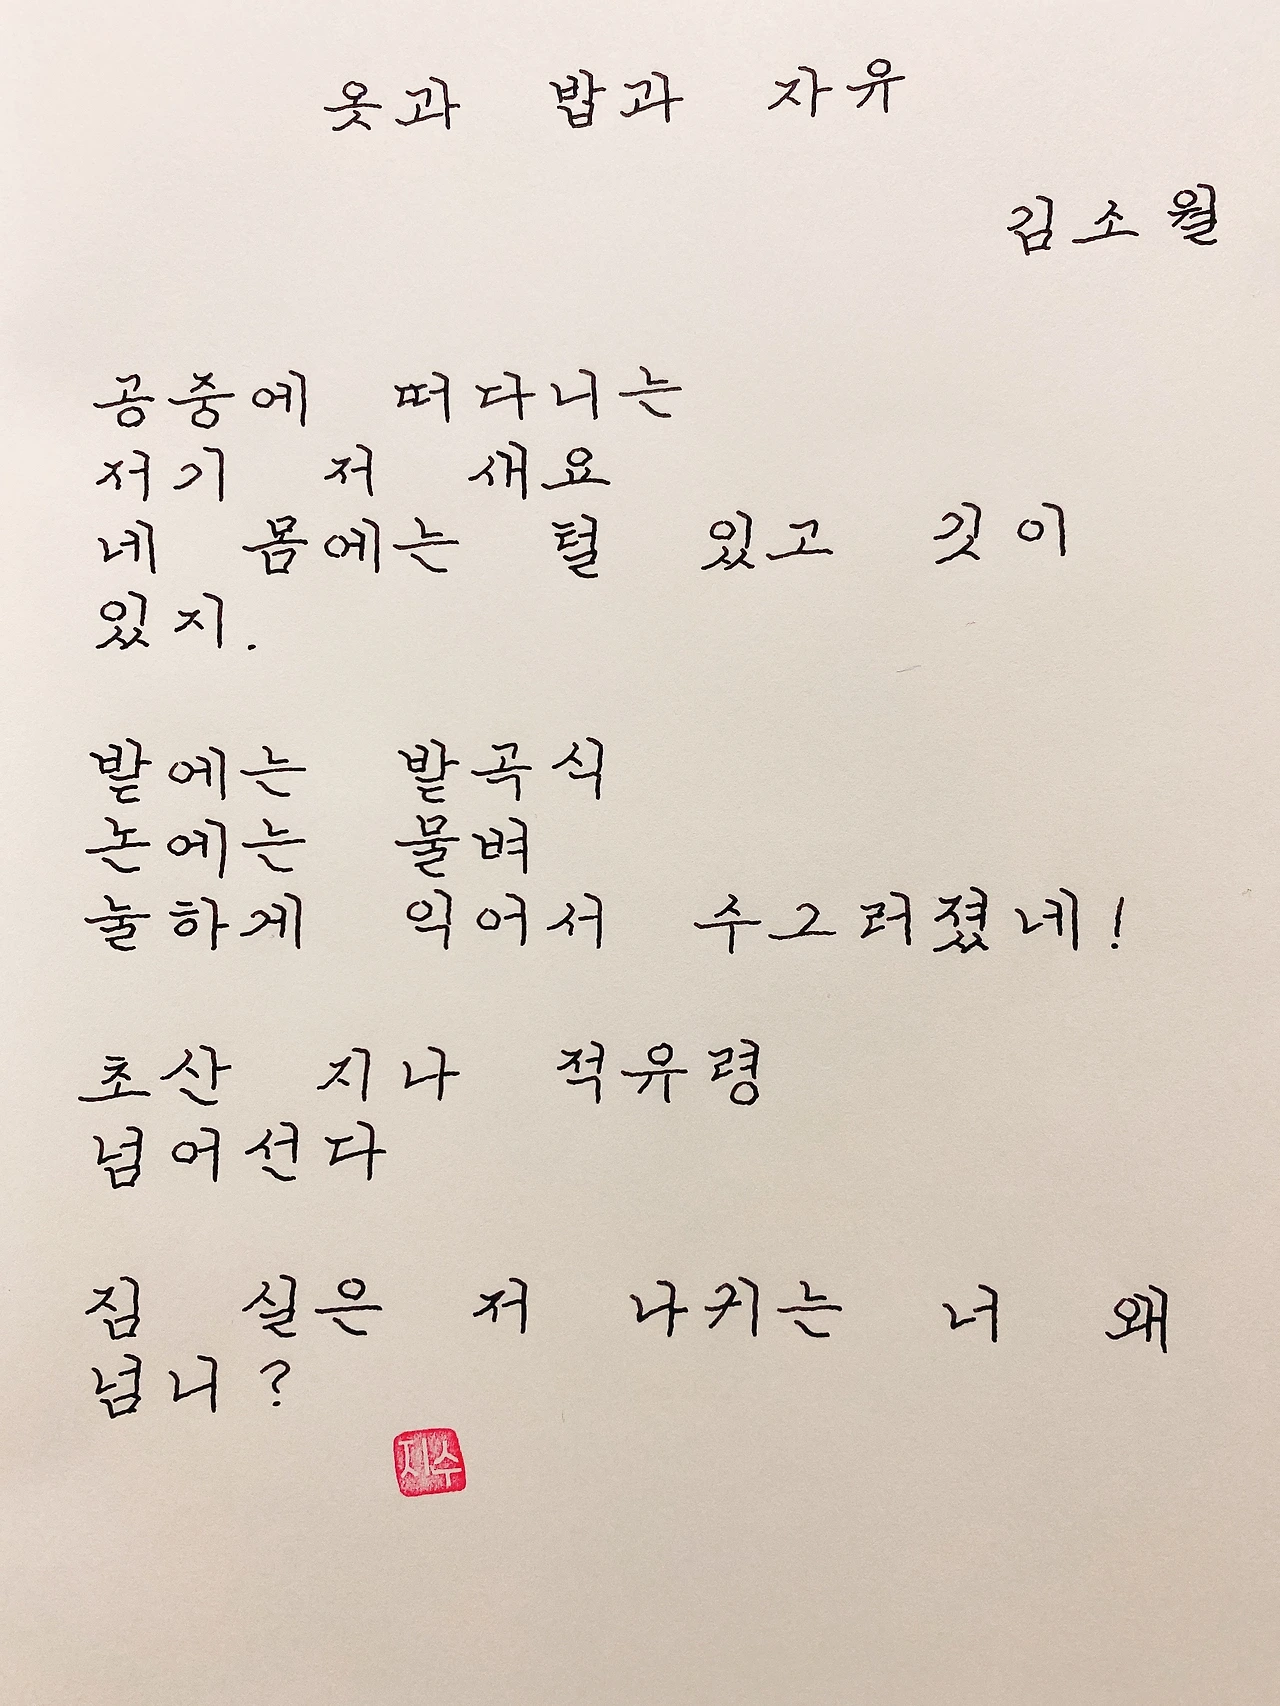 옷과 밥과 자유
김소월
공중에 떠다니는
저기 저 새요
네 몸에는 털 있고 깃이
있지.
밭에는 밭곡식
논에는 물벼
눌하게 익어서 수그러졌네!
초산 지나 적유령
넘어선다
짐 실은 저 나귀는 너 왜
넘니?
지수